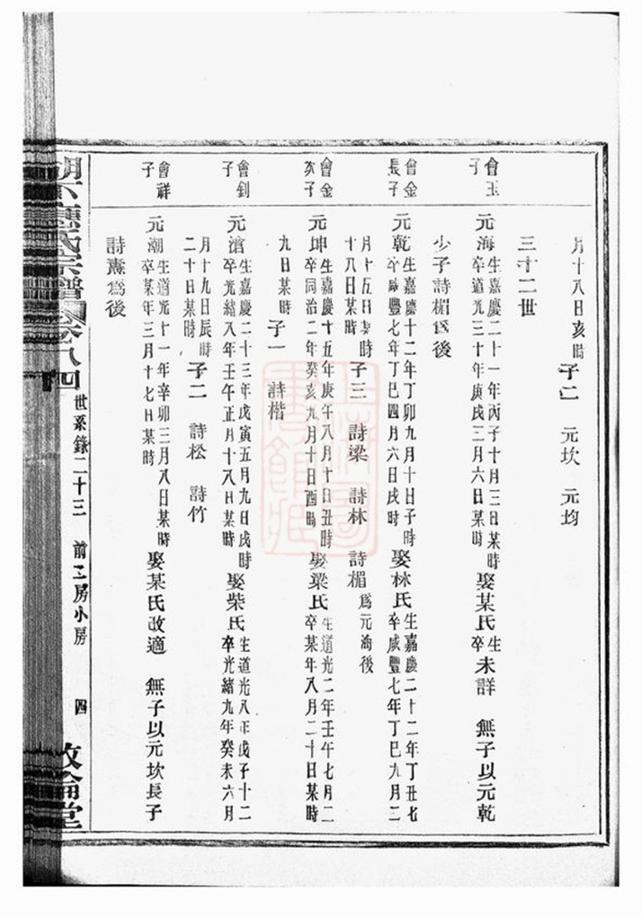 月十八日亥時 子二 元坎 元均
三十二世
會玉子 元海 生嘉慶二十一年丙子十月三日某時 卒道光三十年庚戌三月六日某時 娶某氏 生卒未詳 無子以元乾
少子詩楣為後
會金長子 元乾 生嘉慶十二年丁卯九月十日子時 卒咸豐七年丁巳四月六日戌時 娶林氏 生嘉慶二十二年丁丑七 卒咸豐七年丁巳九月二
月十五日某時 十八日某時 子三 詩梁 詩林 詩楣為元海後
會金次子 元坤 生嘉慶十五年庚午八月十日丑時 卒同治二年癸亥九月十日酉時 娶梁氏 生道光二年壬午七月二 卒某年八月二十日某時
九日某時 子一 詩楷
會釗子 元滄 生嘉慶二十三年戊寅五月九日戌時 卒光緒八年壬午正月十八日某時 娶柴氏 生道光八年戊子十二 卒光緒九年癸未六月
月十九日辰時 二十日某時 子二 詩松 詩竹
會祥子 元潮 生道光十一年辛卯三月八日某時 卒某年三月十七日某時 娶某氏改適 無子以元坎長子
詩燾為後
氏宗譜 卷八四 世系錄二十三 前二房小房 四 敦倫堂